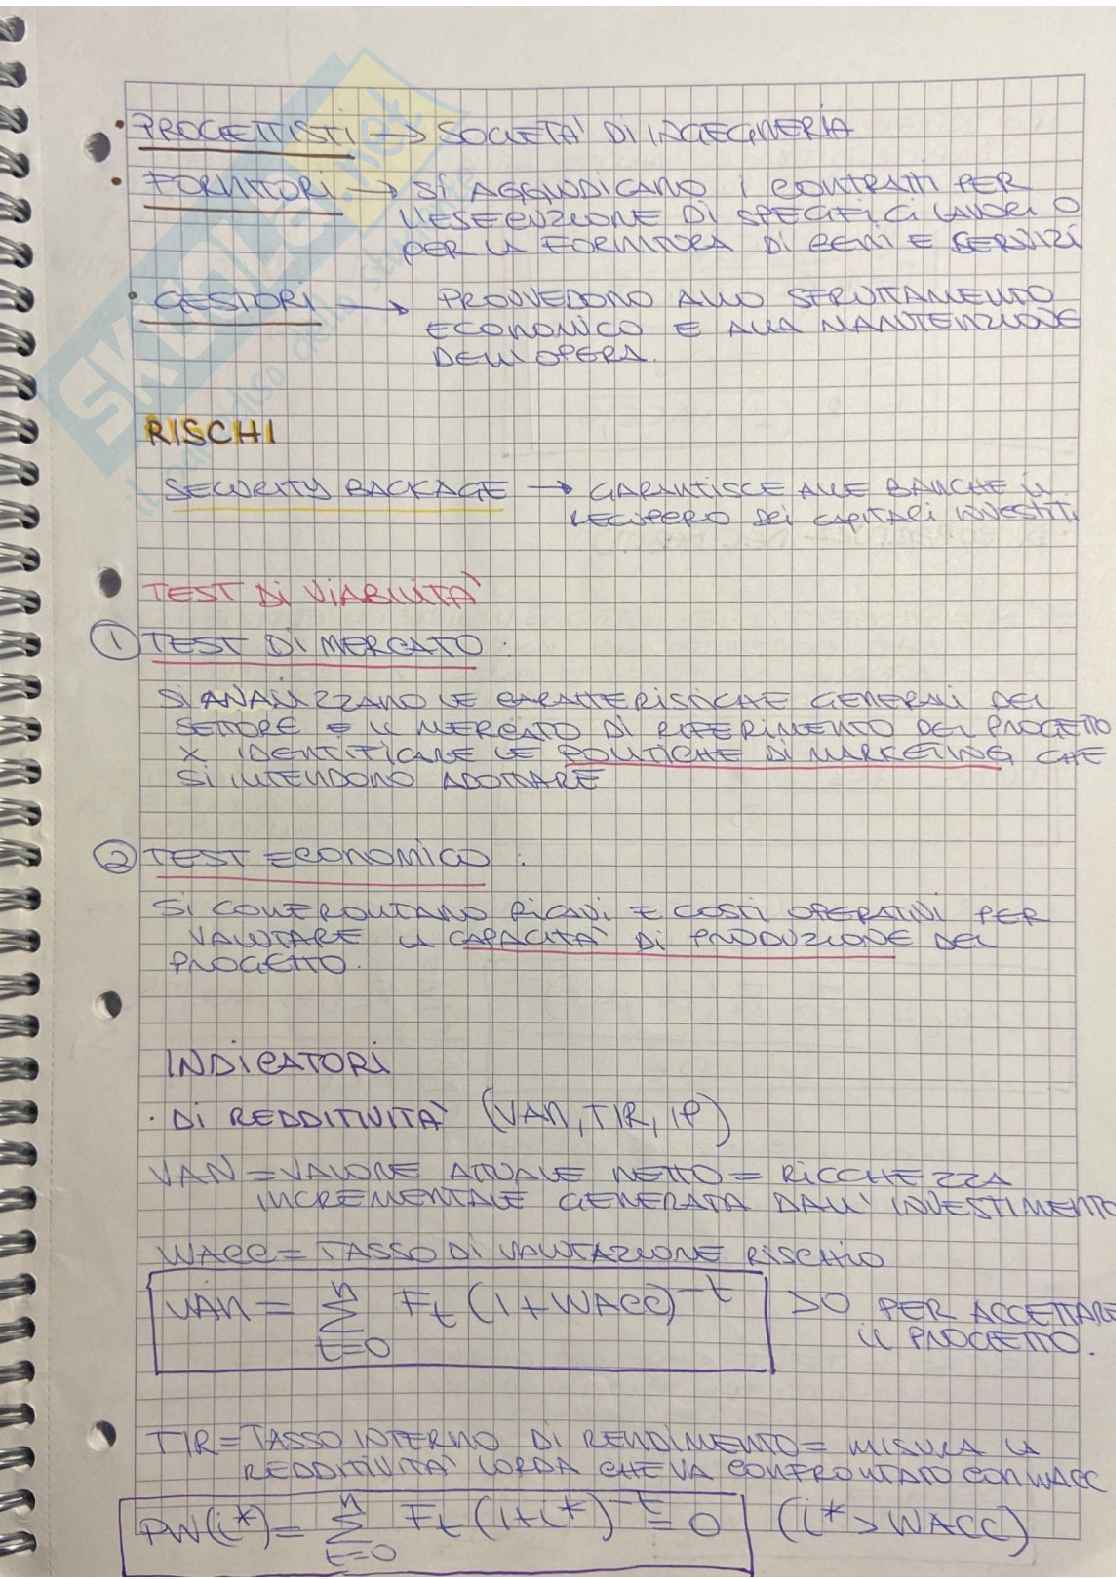 • PROGETTISTI → SOCIETA' DI INGEGNERIA
• FORNITORI → SI AGGIUDICANO I CONTRATTI PER
L'ESECUZIONE DI SPECIFICI LAVORI O
PER LA FORNITURA DI BENI E SERVIZI
• GESTORI → PROVVEDONO ALLO SFRUTTAMENTO
ECONOMICO E ALLA MANUTENZIONE
DELL'OPERA.
RISCHI
SECURITY BACKAGE → GARANTISCE ALLE BANCHE IL
RECUPERO DEI CAPITALI INVESTITI
TEST DI VIABILITA'
① TEST DI MERCATO:
SI ANALIZZANO LE CARATTERISTICHE GENERALI DEL
SETTORE E IL MERCATO DI RIFERIMENTO DEL PROGETTO
X IDENTIFICARE LE POLITICHE DI MARKETING CHE
SI INTENDONO ADOTTARE
② TEST ECONOMICO:
SI CONFRONTANO RICAVI E COSTI OPERATIVI PER
VALUTARE LA CAPACITA' DI PRODUZIONE DEL
PROGETTO.
INDICATORI
• DI REDDITIVITA' (VAN, TIR, IP)
VAN = VALORE ATTUALE NETTO = RICCHEZZA
INCREMENTALE GENERATA DALL'INVESTIMENTO
WACC = TASSO DI VALUTAZIONE RISCHIO
VAN = n ∑ t=0 Ft (1+WACC)^-t >0 PER ACCETTARE
IL PROGETTO.
TIR = TASSO INTERNO DI RENDIMENTO = MISURA LA
REDDITIVITA' LORDA CHE VA CONFRONTATO CON WACC
PW(i*) = n ∑ t=0 Ft (1+i*)^-t = 0 (i* > WACC)
SKUOLA.net